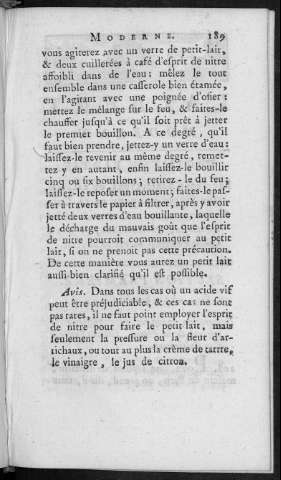 MODERNE. 189
vous agiterez avec un verre de petit-lait,
& deux cuillerées à café d'esprit de nitre
affoibli dans de l'eau: mêlez le tout
ensemble dans une casserole bien étamée,
en l'agitant avec une poignée d'osier:
mettez le mélange sur le feu, & faites-le
chauffer jusqu'à ce qu'il soit prêt à jetter
le premier bouillon. A ce degré, qu'il
faut bien prendre, jettez-y un verre d'eau:
laissez-le revenir au même degré, remet-
tez y en autant, enfin laissez-le bouillir
cinq ou six bouillons; retirez-le du feu;
laissez-le reposer un moment; faites-le pas-
ser à travers le papier à filtrer, après y avoir
jetté deux verres d'eau bouillante, laquelle
le décharge du mauvais goût que l'esprit
de nitre pourroit communiquer au petit
lait, si on ne prenoit pas cette précaution.
De cette maniére vous aurez un petit lait
aussi-bien clarifié qu'il est possible.
Avis. Dans tous les cas où un acide vif
peut être préjudiciable, & ces cas ne sont
pas rares, il ne faut point employer l'esprit
de nitre pour faire le petit lait, mais
seulement la pressure ou la fleur d'ar-
tichaux, ou tout au plus la crême de tartre,
le vinaigre, le jus de citron.